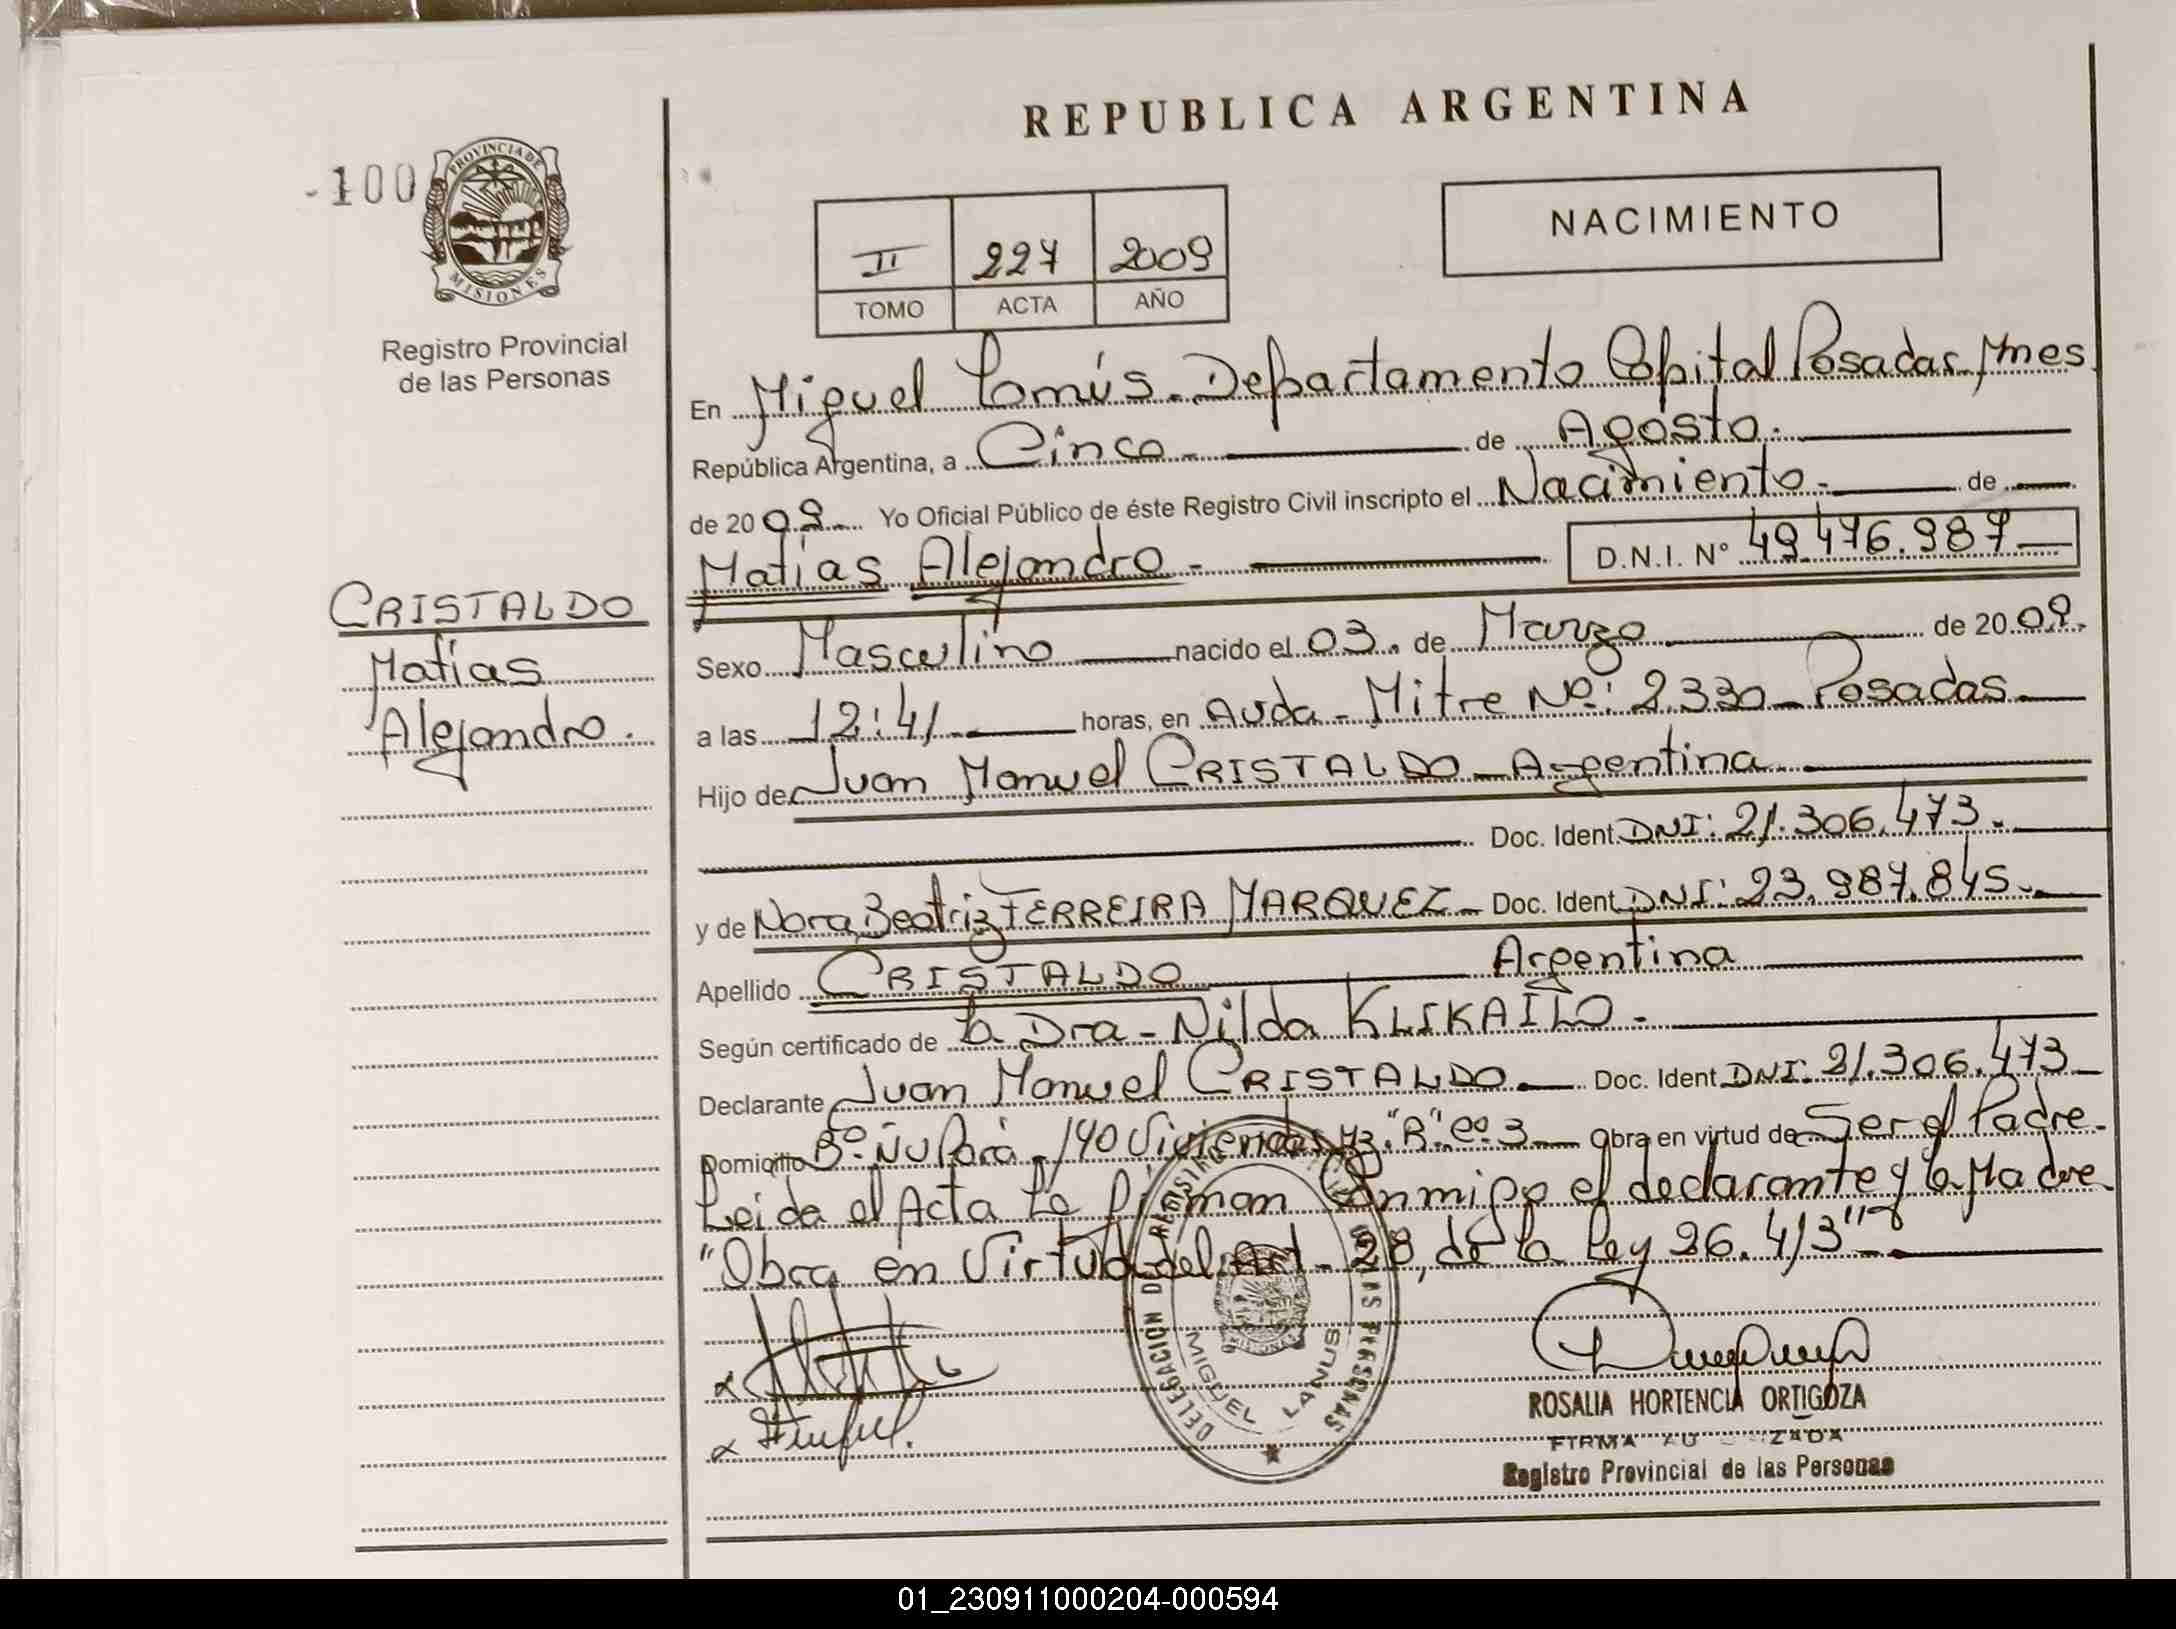 REPUBLICA ARGENTINA
-100
PROVINCIA DE
MISIONES
Registro Provincial
de las Personas
NACIMIENTO
II 227 2009
TOMO ACTA AÑO
En Miguel Lanús. Departamento Capital Posadas Mnes
República Argentina, a Cinco de Agosto.
de 2009 Yo Oficial Público de éste Registro Civil inscripto el Nacimiento de
Matías Alejandro - D.N.I. N° 49.476.987
CRISTALDO
Matías
Alejandro.
Sexo Masculino nacido el 03. de Marzo de 2009.
a las 12:41 horas, en Avda - Mitre Nº: 2.330 - Posadas
Hijo de Juan Manuel CRISTALDO - Argentina
Doc. Ident. DNI: 21.306.473.
y de Nora Beatriz FERREIRA MARQUEZ - Doc. Ident. DNI: 23.987.845.
Apellido CRISTALDO Argentina
Según certificado de la Dra - Nilda KLIKAILO -
Declarante Juan Manuel CRISTALDO. Doc. Ident. DNI. 21.306.473
Domicilio Bº Ñu Porá - 140 Viviendas Mz. "B" Cº 3 Obra en virtud de Ser el Padre.
Leida el Acta La Firman Conmigo el declarante y la Madre
"Obra en Virtud del Art - 28, de la Ley 26.413"
DELEGACION DE REGISTRO LAS PERSONAS
MIGUEL LANUS
ROSALIA HORTENCIA ORTIGOZA
FIRMA AU ZADA
Registro Provincial de las Personas
01_230911000204-000594